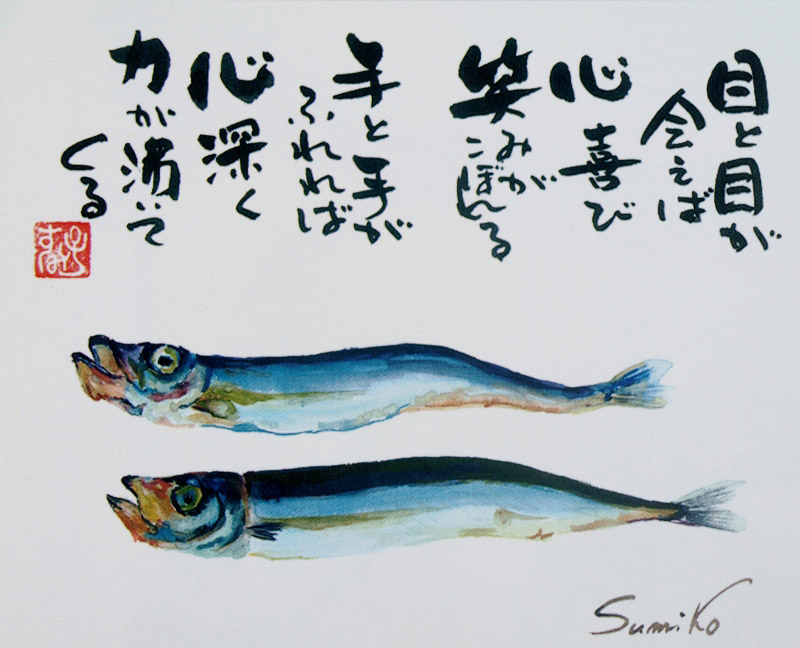 目と目が
会えば
心喜び
笑みが
こぼれる
手と手が
ふれれば
心深く
力が湧いて
くる
SumiKo